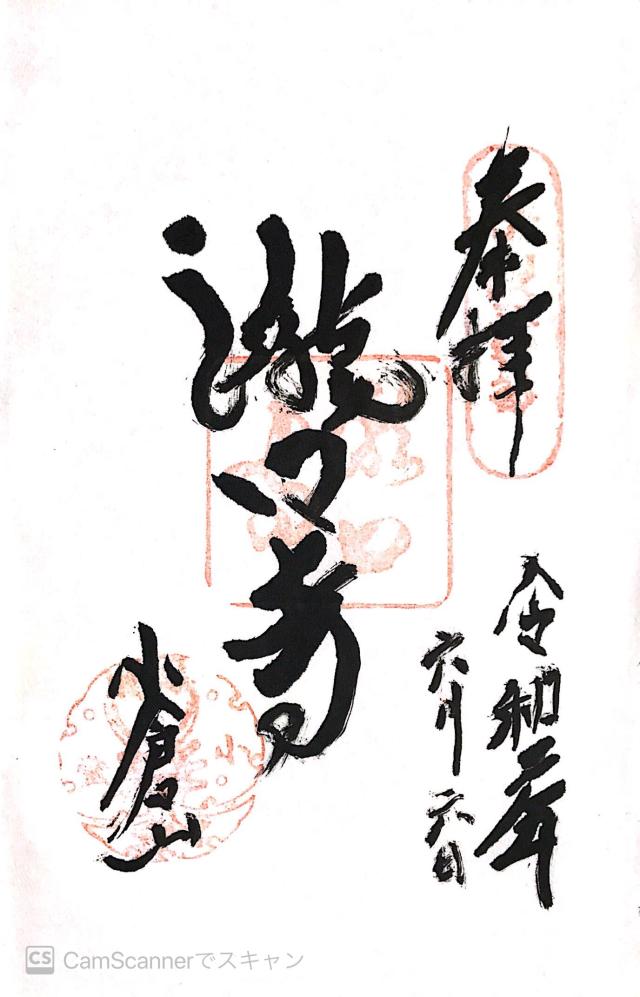 奉拝
令和二年
六月六日
滝口寺
小倉山
CS CamScannerでスキャン